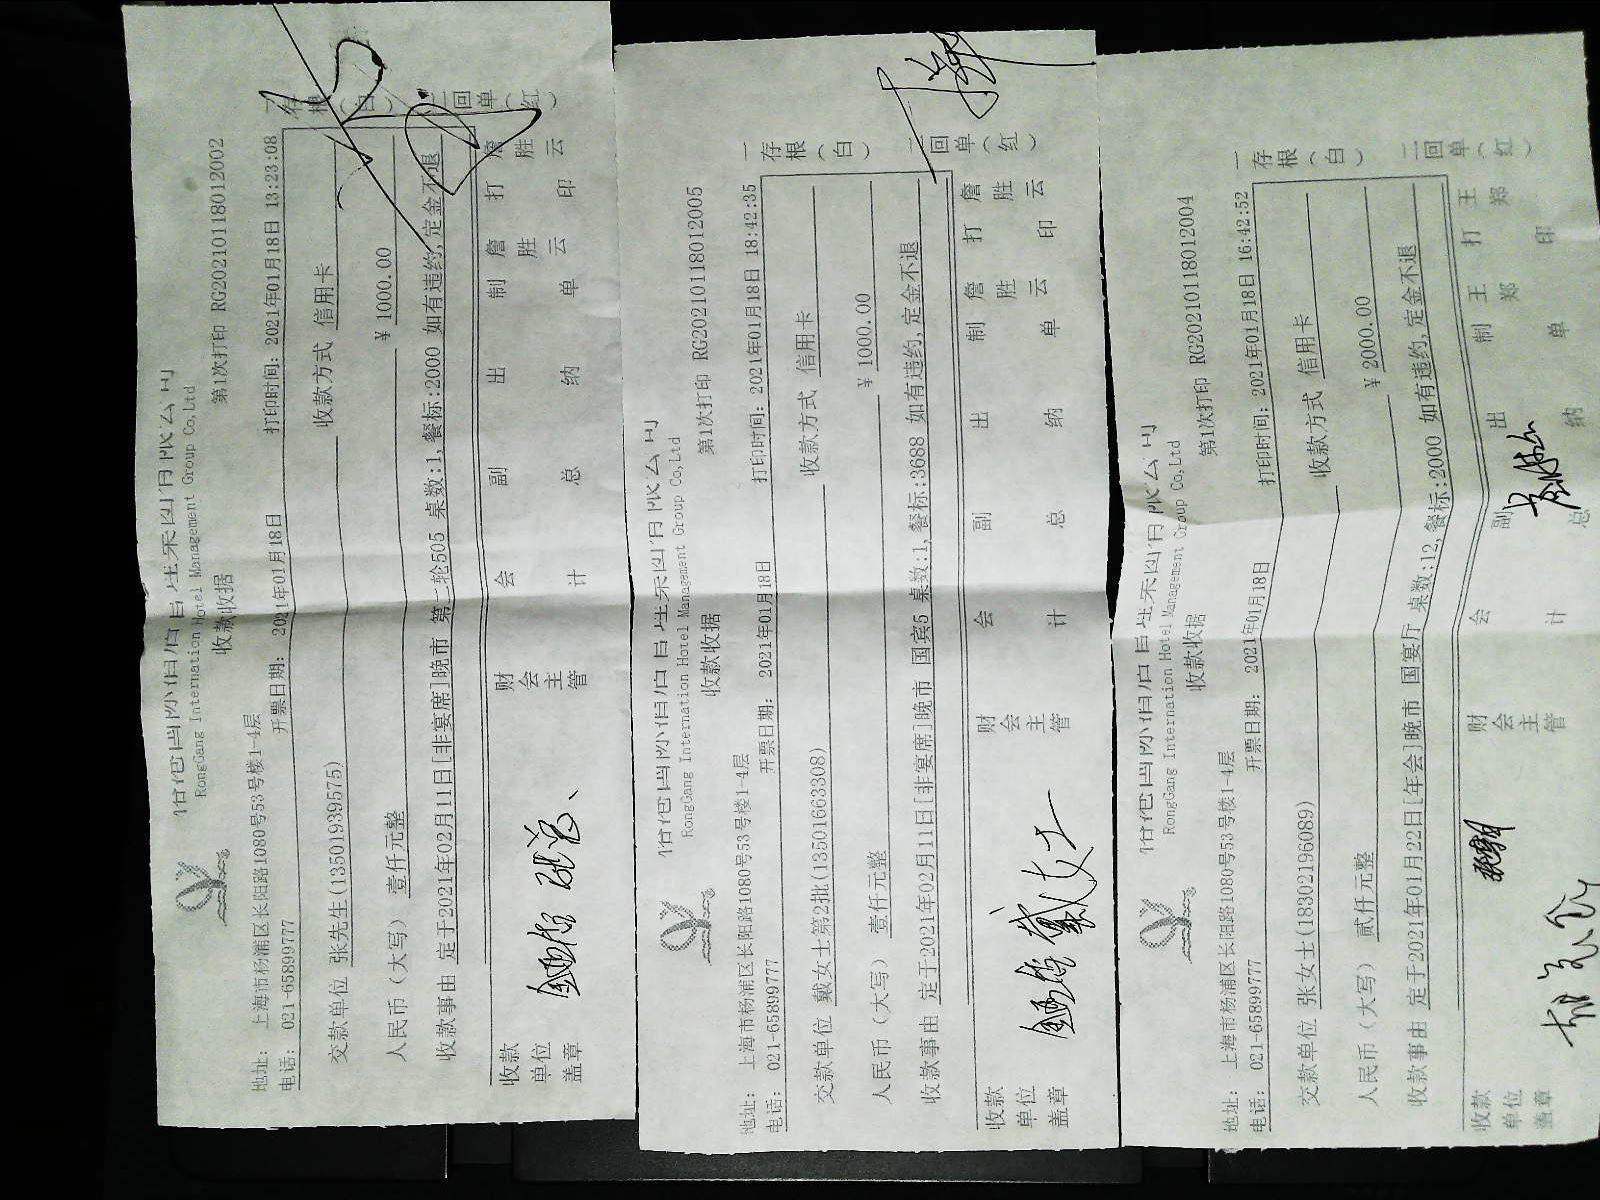 RongGang Internation Hotel Management Group Co,Ltd
收款收据
第1次打印 RG20210118012002
地址： 上海市杨浦区长阳路1080号53号楼1-4层
电话： 021-65899777 开票日期： 2021年01月18日 打印时间： 2021年01月18日 13:23:08
交款单位 张先生(13501939575) 收款方式 信用卡
人民币（大写） 壹仟元整 ¥ 1000.00
收款事由 定于2021年02月11日[非宴席]晚市 第二轮505 桌数:1,餐标:2000 如有违约,定金不退
收款单位盖章 财会主管 会计 副总 出纳 制单 詹胜云 打印 詹胜云
一存根（白） 二回单（红）
RongGang Internation Hotel Management Group Co,Ltd
收款收据
第1次打印 RG20210118012005
地址： 上海市杨浦区长阳路1080号53号楼1-4层
电话： 021-65899777 开票日期： 2021年01月18日 打印时间： 2021年01月18日 18:42:35
交款单位 戴女士第2批(13501663308) 收款方式 信用卡
人民币（大写） 壹仟元整 ¥ 1000.00
收款事由 定于2021年02月11日[非宴席]晚市 国宾5 桌数:1,餐标:3688 如有违约,定金不退
收款单位盖章 财会主管 会计 副总 出纳 制单 詹胜云 打印 詹胜云
戴女士
一存根（白） 二回单（红）
RongGang Internation Hotel Management Group Co,Ltd
收款收据
第1次打印 RG20210118012004
地址： 上海市杨浦区长阳路1080号53号楼1-4层
电话： 021-65899777 开票日期： 2021年01月18日 打印时间： 2021年01月18日 16:42:52
交款单位 张女士(18302196089) 收款方式 信用卡
人民币（大写） 贰仟元整 ¥ 2000.00
收款事由 定于2021年01月22日[年会]晚市 国宴厅 桌数:12,餐标:2000 如有违约,定金不退
收款单位盖章 财会主管 会计 副总 出纳 制单 王郑 打印 王郑
一存根（白） 二回单（红）